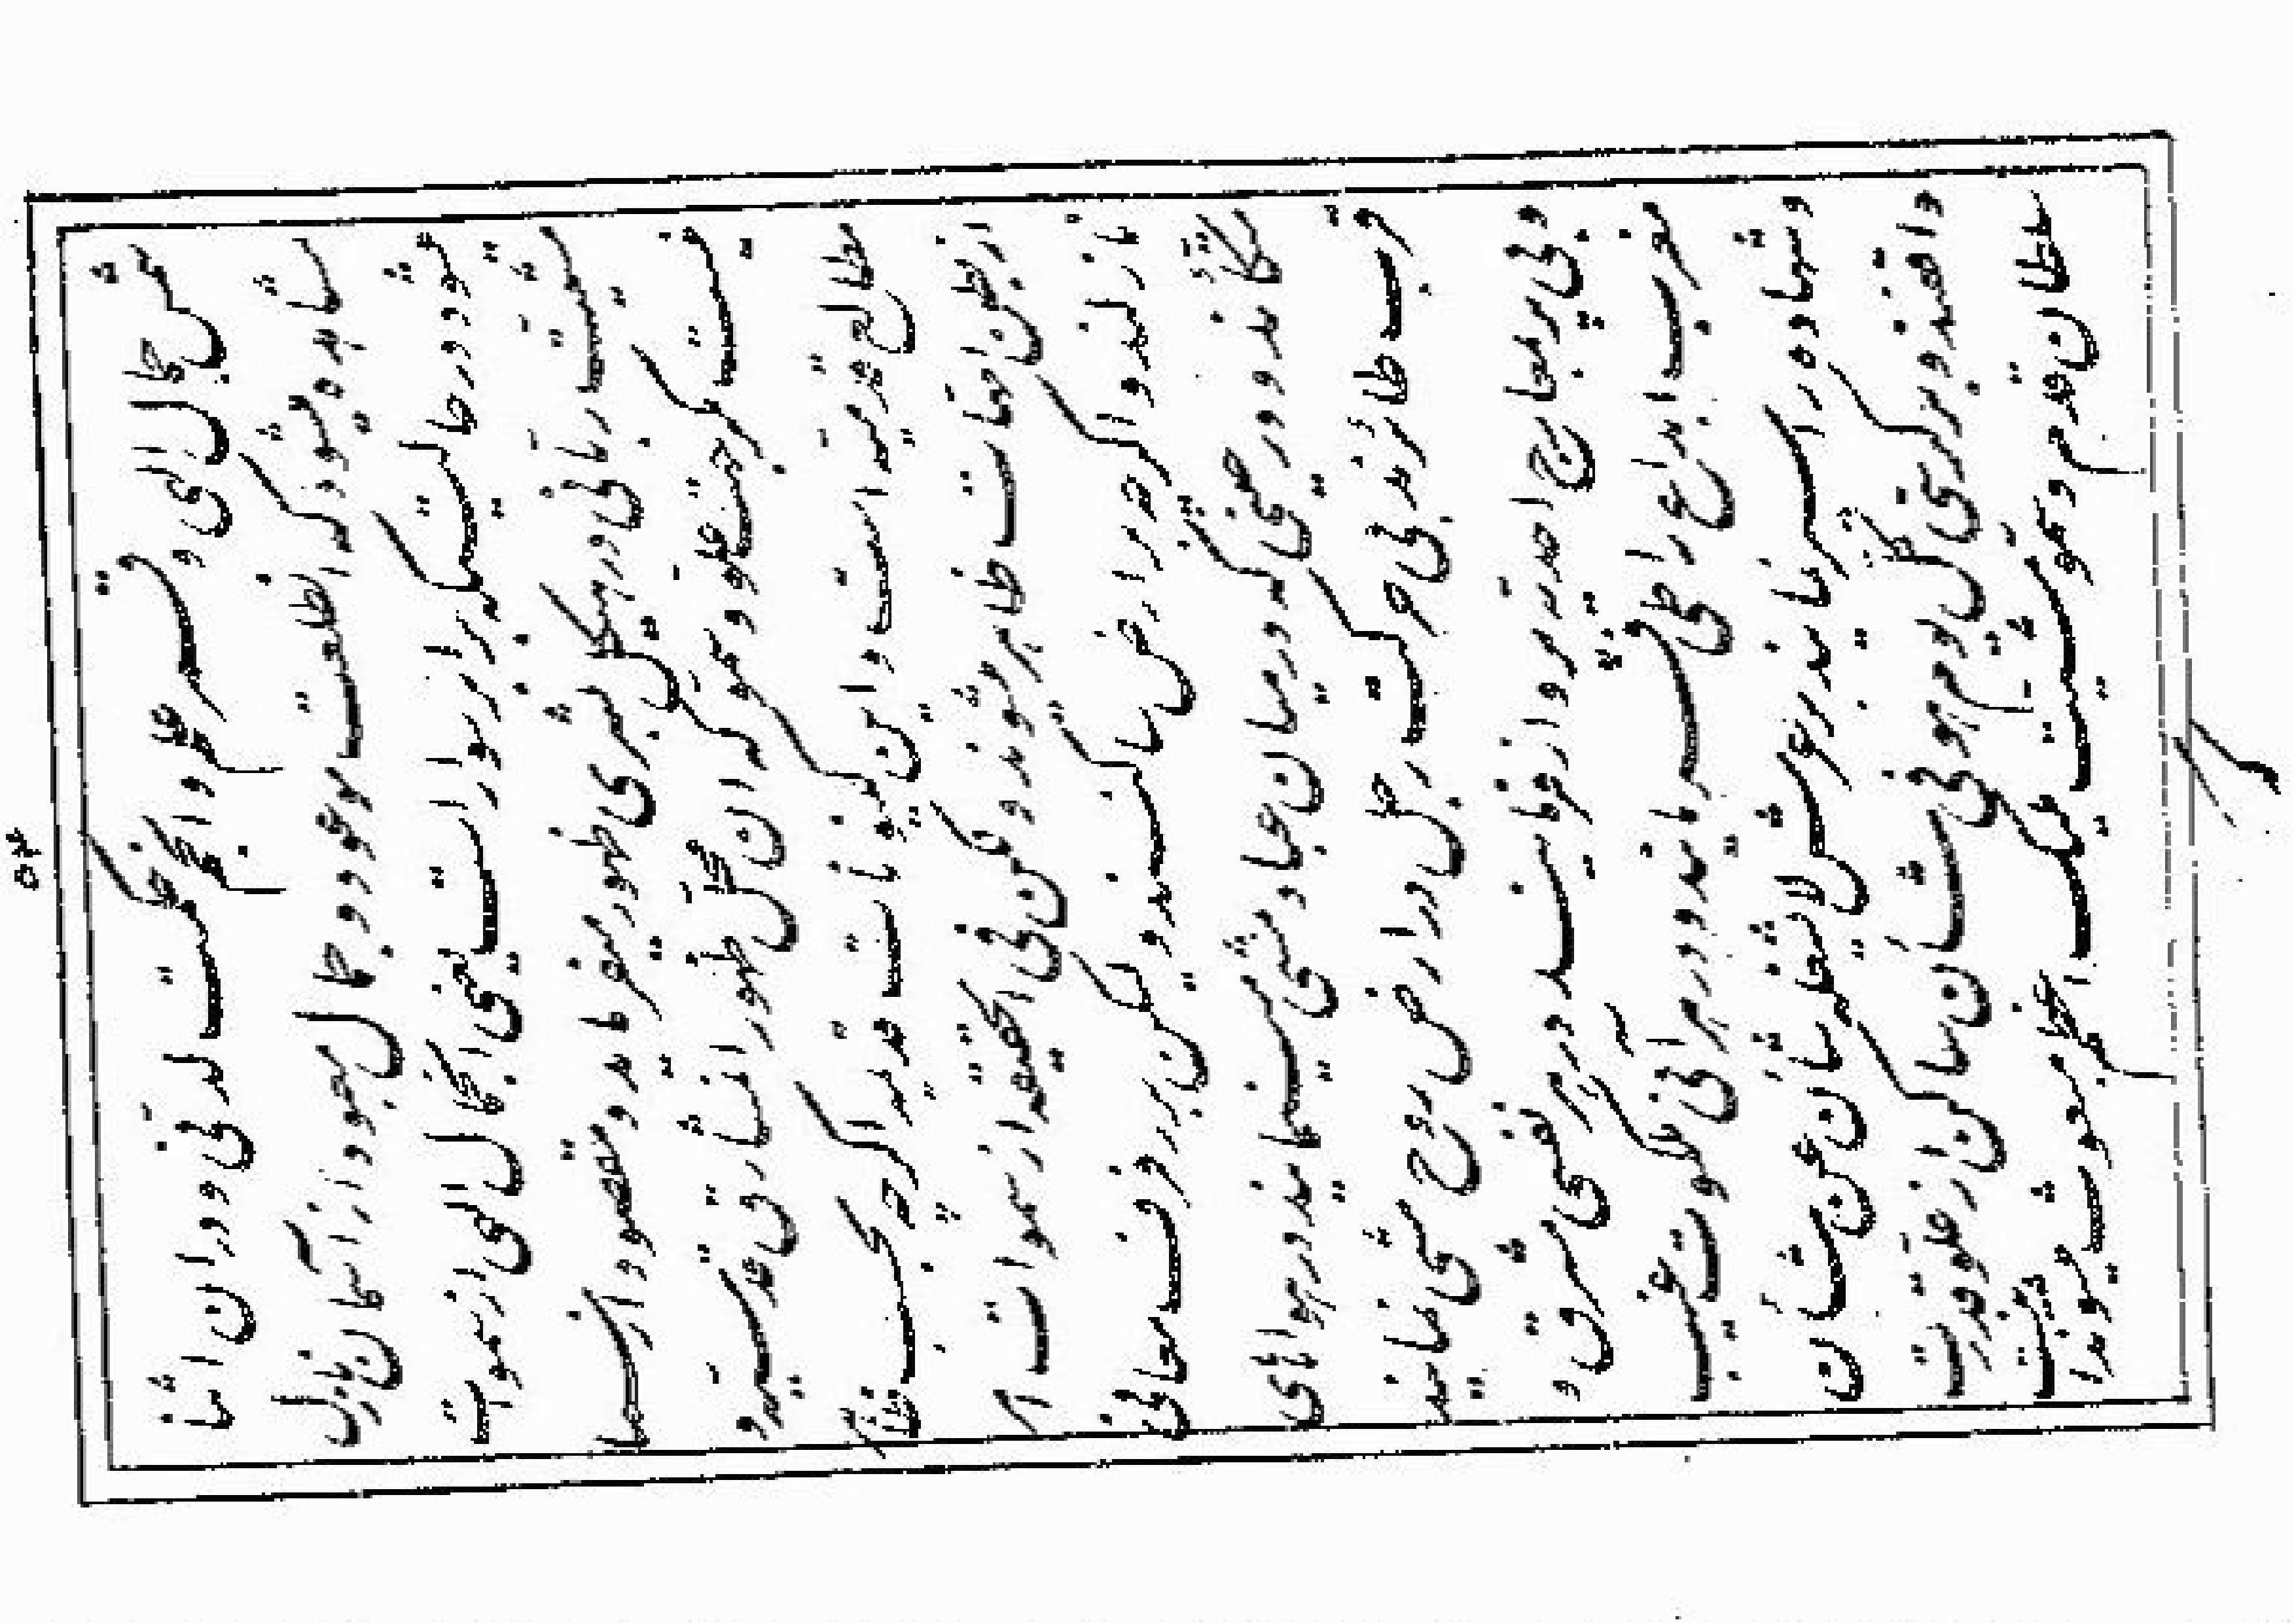 شمس جمال الهی و قمر علم و انجم حکمت لدنی و در آن اثنا
مشاهده میشود که طلعت موعود و جمال معبود از آسمان نازل
شود در حالتیکه بر ابر سوار است یعنی آنجمال الهی از سموات
مشیت ربانی در هیکل بشری ظهور میفرماید و مقصود از سما
نیست مگر جهت علو و سمو که آن محل ظهور آن مشارق قدسیه و
مطالع قدمیه است و این کینونات قدیمه اگرچه بحسب ظاهر
از بطن امهات ظاهر میشوند ولیکن فی الحقیقه از سموات امر
نازلند و اگرچه بر ارض ساکنند ولیکن بر رفرف معانی
متکئند و در حینی که در میان عباد مشی مینمایند در هواهای
قرب طائرند بی حرکت رجل در ارض روح مشی نمایند
و بی پر بمعارج احدیه پرواز فرمایند در هر نفسی مشرق و
مغرب ابداع را طی فرمایند و در هر آنی ملکوت غیب
و شهاده را سیر نمایند بر عرش لا یشغله شان عن شان
واقفند و بر کرسی کل یوم هو فی شان ساکن از علو قدرت
سلطان قدم و سمو مشیت ملیک اعظم مبعوث میشوند اینست